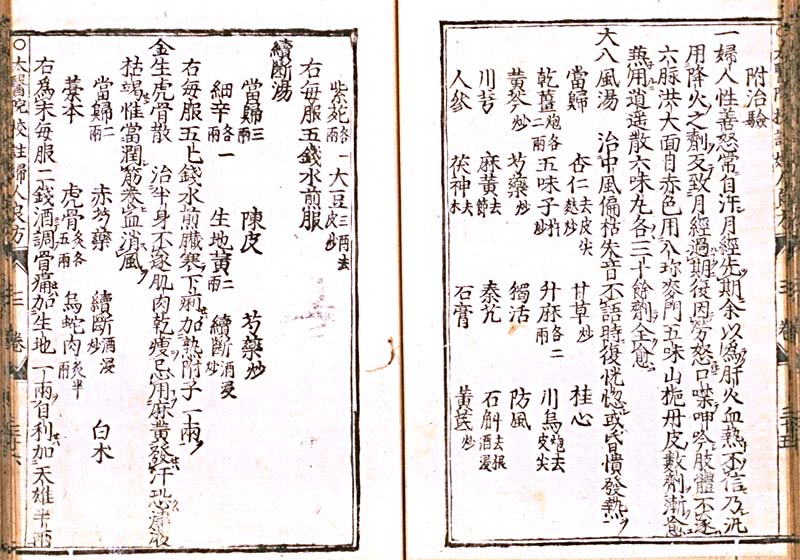 附治驗
一婦人性善怒常自汗月經先期余以為肝火血熱不信乃汎
用降火之劑反致月經過期後因勞怒口噤呻吟肢體不遂
六脉洪大面目赤色用八珍麥門五味山梔丹皮數劑漸愈
兼用逍遥散六味丸各三十餘劑全愈
大八風湯 治中風偏枯失音不語時復恍惚或昏憒發熱
當歸 杏仁去皮尖麩炒 甘草炒 桂心
乾薑炮各二兩 五味子杵炒 升麻各二兩 川烏炮去皮尖
黄芩炒 芍藥炒 獨活 防風
川芎 麻黄去節 秦艽 石斛去根酒浸
人參 茯神去木 石膏 黄芪炒
紫菀各一兩 大豆三兩去皮炒
右每服五錢水煎服
續斷湯
當歸三兩 陳皮 芍藥炒
細辛各一兩 生地黄二兩 續斷酒浸炒
右每服五七錢水煎臟寒下痢加熟附子一兩
金生虎骨散 治半身不遂肌肉乾瘦忌用麻黄發汗恐津液
枯竭惟當潤筋養血消風
當歸二兩 赤芍藥 續斷酒浸炒 白朮
藁本 虎骨炙各五兩 烏蛇肉炙半兩
右為末每服二錢酒調骨痛加生地一兩自利加天雄半兩
○太醫院校註婦人良方 三卷